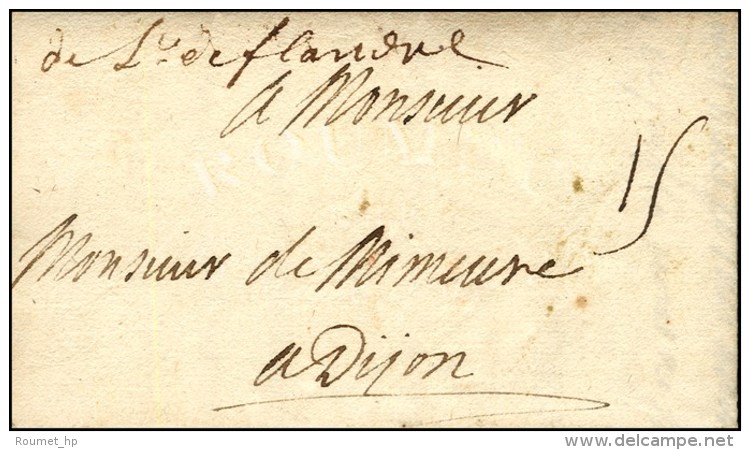 de L.le de flandre
a Monsieur
15
Monsieur de Mimeure
a Dijon
ROUMET
Roumet_hp
delcampe.net